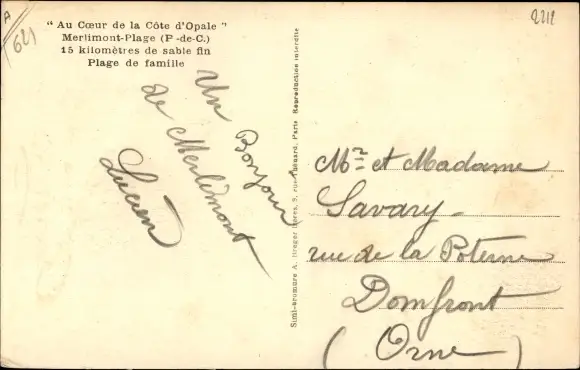 A
(62)
2212
" Au Cœur de la Côte d'Opale "
Merlimont-Plage (P -de-C.)
15 kilomètres de sable fin
Plage de famille
Un Bonjour
de Merlimont
Lucien
Simili-bromure A. Breger Frères, 9, rue Thénard, Paris Reproduction interdite
Mr et Madame
Savary
rue de la Poterne
Domfront
(Orne)